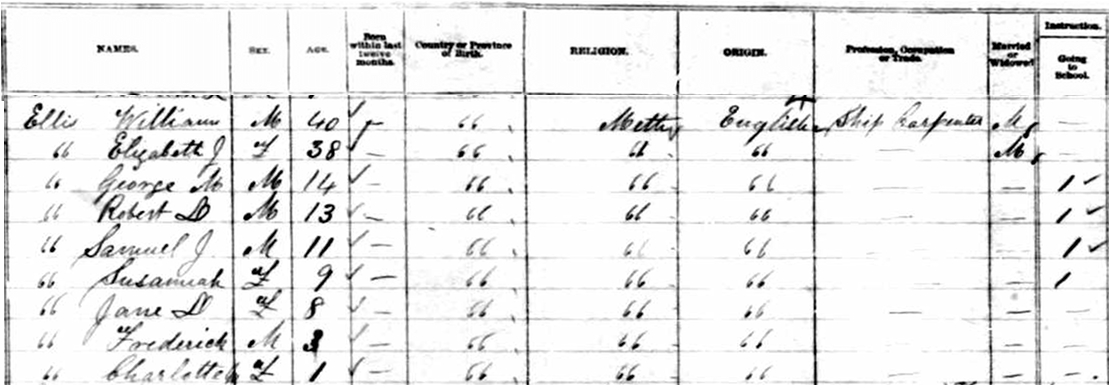 NAMES. SEX. AGE. Born within last twelve months. Country or Province of Birth. RELIGION. ORIGIN. Profession, Occupation or Trade. Married or Widowed Instruction. Going to School.
Ellis William M 40 – " Meth English Ship Carpenter M –
" Elizabeth J F 38 – " " " — M –
" George M M 14 – " " " — – 1
" Robert D M 13 – " " " — – 1
" Samuel J M 11 – " " " — – 1
" Susannah F 9 – " " " — – 1
" Jane D F 8 – " " " — – –
" Frederick M 3 – " " " — – –
" Charlotte F 1 – " " " — – –